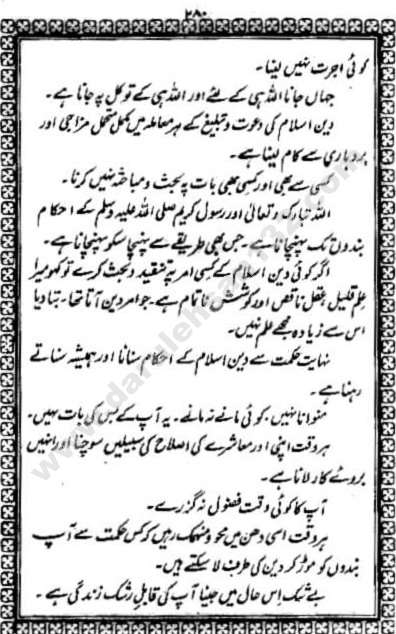 ۲۸۰
کوئی اجرت نہیں لینا۔
جہاں جانا اللہ ہی کے لئے اور اللہ ہی کے توکل پہ جانا ہے۔
دین اسلام کی دعوت و تبلیغ کے ہر معاملہ میں مکمل تحمل مزاجی اور
بردباری سے کام لینا ہے۔
کسی سے بھی اور کسی بھی بات پہ بحث و مباحثہ نہیں کرنا۔
اللہ تبارک و تعالیٰ اور رسول کریم صلی اللہ علیہ وسلم کے احکام
بندوں تک پہنچانا ہے۔ جس بھی طریقے سے پہنچا سکو پہنچانا ہے۔
اگر کوئی دین اسلام کے کسی امر پہ تنقید و بحث کرے تو کہو میرا
علم قلیل، عقل ناقص اور کوشش ناتمام ہے۔ جو امر دین آتا تھا۔ بتا دیا
اس سے زیادہ مجھے علم نہیں۔
نہایت حکمت سے دین اسلام کے احکام سنانا اور ہمیشہ سناتے
رہنا ہے۔
منوانا نہیں۔ کوئی مانے نہ مانے۔ یہ آپ کے بس کی بات نہیں۔
ہر وقت اپنی اور معاشرے کی اصلاح کی سبیلیں سوچنا اور انہیں
بروئے کار لانا ہے۔
آپ کا کوئی وقت فضول نہ گزرے۔
ہر وقت اسی دھن میں محو و منہمک رہیں کہ کس حکمت سے آپ
بندوں کو موڑ کر دین کی طرف لا سکتے ہیں۔
بے شک اس حال میں جینا آپ کی قابل رشک زندگی ہے۔